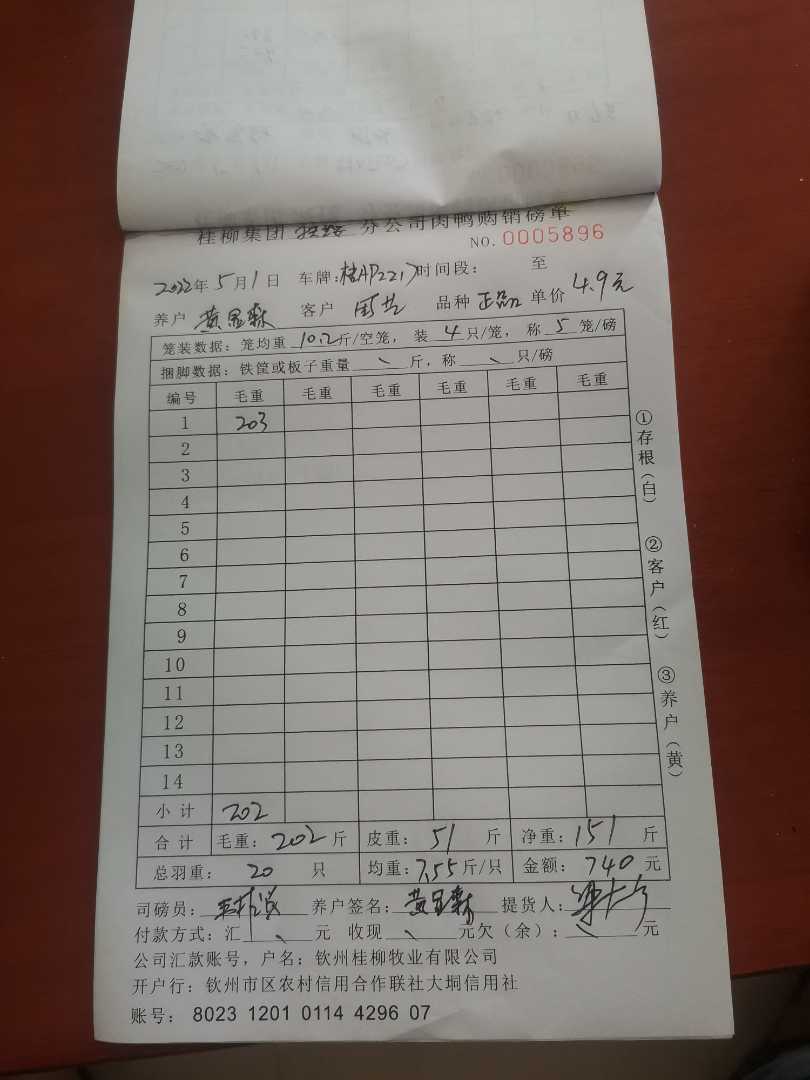 桂柳集团 分公司肉鸭购销磅单
NO. 0005896
2022年5月1日 车牌:桂AP2217 时间段: 至
养户 黄显森 客户 品种 正品 单价 4.9元
笼装数据: 笼均重 10.2斤/空笼, 装 4 只/笼, 称 5 笼/磅
捆脚数据: 铁筐或板子重量 、 斤, 称 、 只/磅
编号 毛重 毛重 毛重 毛重 毛重 毛重
1 203
2
3
4
5
6
7
8
9
10
11
12
13
14
小计 202
合计 毛重: 202 斤 皮重: 51 斤 净重: 151 斤
总羽重: 20 只 均重: 7.55斤/只 金额: 740 元
司磅员: 养户签名: 黄显森 提货人:
付款方式: 汇 、 元 收现 、 元欠(余): 、 元
公司汇款账号, 户名: 钦州桂柳牧业有限公司
开户行: 钦州市区农村信用合作联社大垌信用社
账号: 8023 1201 0114 4296 07
①存根(白) ②客户(红) ③养户(黄)